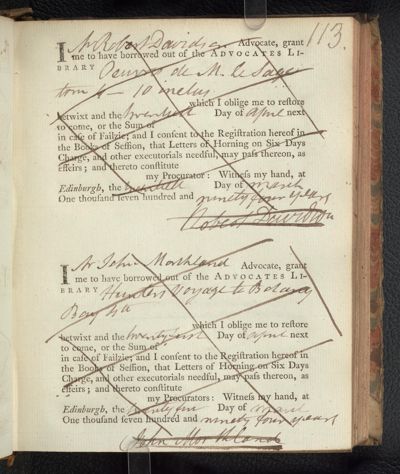 113.
I Mr Robert Davidson Advocate, grant
me to have borrowed out of the ADVOCATES LI-
BRARY Oeuvres de M. le Sage
tom 4 - 10 inclus
which I oblige me to restore
betwixt and the twentieth Day of april next
to come, or the Sum of
in case of Failzie; and I consent to the Registration hereof in
the Books of Session, that Letters of Horning on Six Days
Charge, and other executorials needful, may pass thereon, as
effeirs; and thereto constitute
my Procurator: Witness my hand, at
Edinburgh, the twentieth Day of march
One thousand seven hundred and ninety four years
Robert Davidson
I Mr John Morthland Advocate, grant
me to have borrowed out of the ADVOCATES LI-
BRARY Hunters Voyage to Botany
Bay
which I oblige me to restore
betwixt and the twentyfirst Day of april next
to come, or the Sum of
in case of Failzie; and I consent to the Registration hereof in
the Books of Session, that Letters of Horning on Six Days
Charge, and other executorials needful, may pass thereon, as
effeirs; and thereto constitute
my Procurators: Witness my hand, at
Edinburgh, the Day of march
One thousand seven hundred and ninety four years
John Morthland